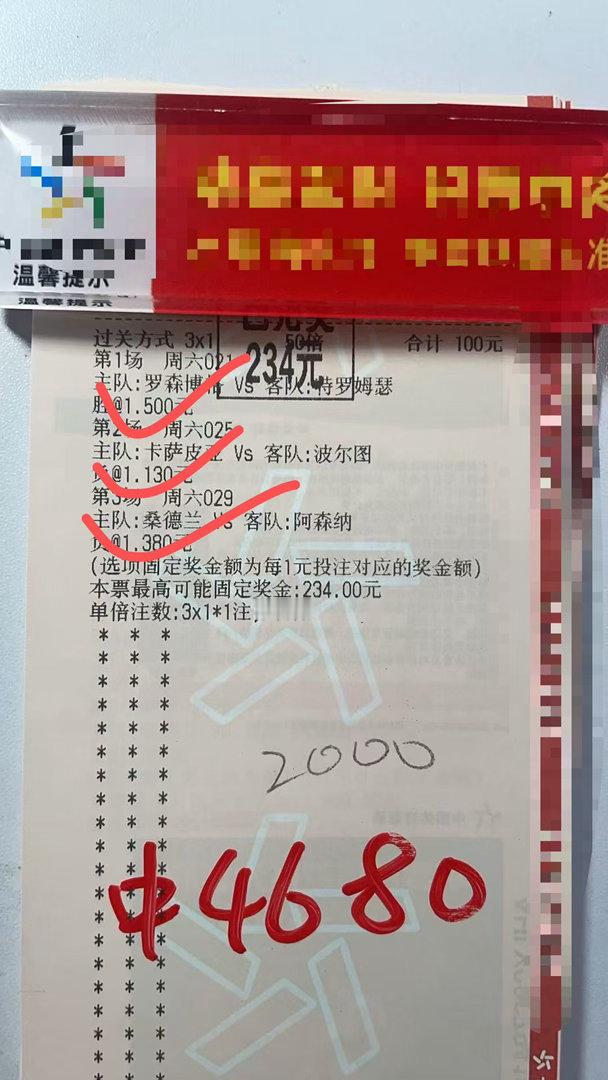 温馨提示
过关方式 3x1 50倍 合计 100元
234元
第1场 周六021
主队:罗森博格 Vs 客队:特罗姆瑟
胜@1.500元
第2场 周六025
主队:卡萨皮亚 Vs 客队:波尔图
负@1.130元
第3场 周六029
主队:桑德兰 Vs 客队:阿森纳
负@1.380元
(选项固定奖金额为每1元投注对应的奖金额)
本票最高可能固定奖金:234.00元
单倍注数:3x1*1注,
2000
中4680